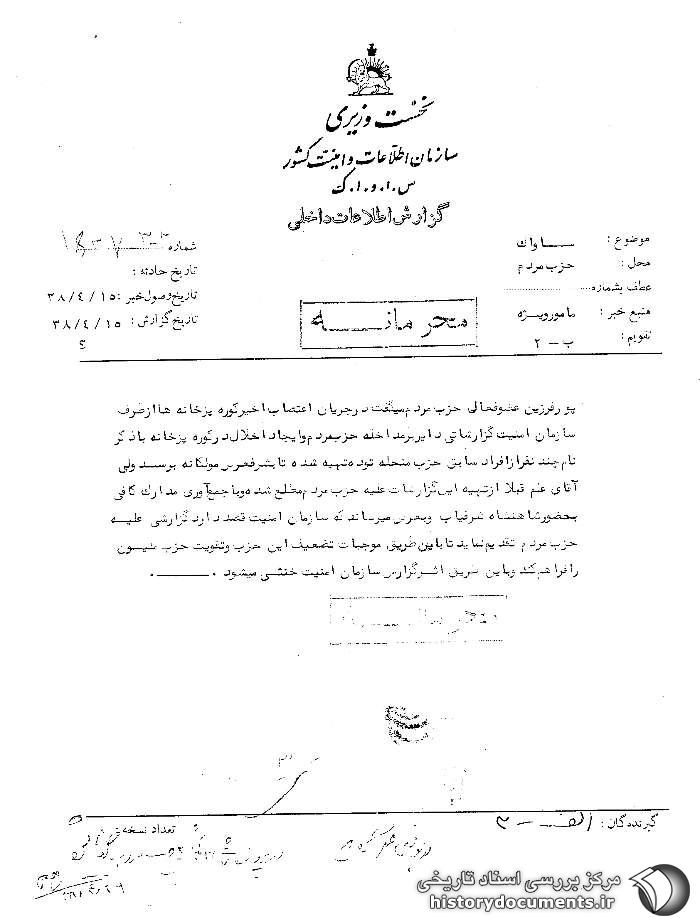 نخست وزیری
سازمان اطلاعات و امنیت کشور
س.ا.و.ا.ک
گزارش اطلاعات داخلی
موضوع : ســاواك
محل : حزب مردم
عطف بشماره
منبع خبر : مامور ویژه
تقویم : ب - ۲
شماره
تاریخ حادثه :
تاریخ وصول خبر : ۳۸/٤/۱٥
تاریخ گزارش : ۳۸/٤/۱٥
محرمانــه
پورفرزین عضو فعالی حزب مردم میگفت در جریان اعتصاب اخیر کوره پزخانه ها از طرف
سازمان امنیت گزارشاتی دایر بر مداخله حزب مردم و ایجاد اخلال در کوره پزخانه با ذکر
نام چند نفر از افراد سابق حزب منحله توده تهیه شده تا بشرفعرض ملوکانه برسد ولی
آقای علم قبلا از تهیه این گزارشات علیه حزب مردم مطلع شده و با جمع آوری مدارك کافی
بحضور شاهنشاه شرفیاب و بعرض میرساند که سازمان امنیت قصد دارد گزارشی علیــه
حزب مردم تقدیم نماید تا باین طریق موجبات تضعیف این حزب و تقویت حزب ملیــون
را فراهم کند و باین طریق اثــر گزارش سازمان امنیت خنثی میشود .ــــــ.
گیرندگان : الف - ۲
تعداد نسخه
مرکز بررسی اسناد تاریخی
historydocuments.ir